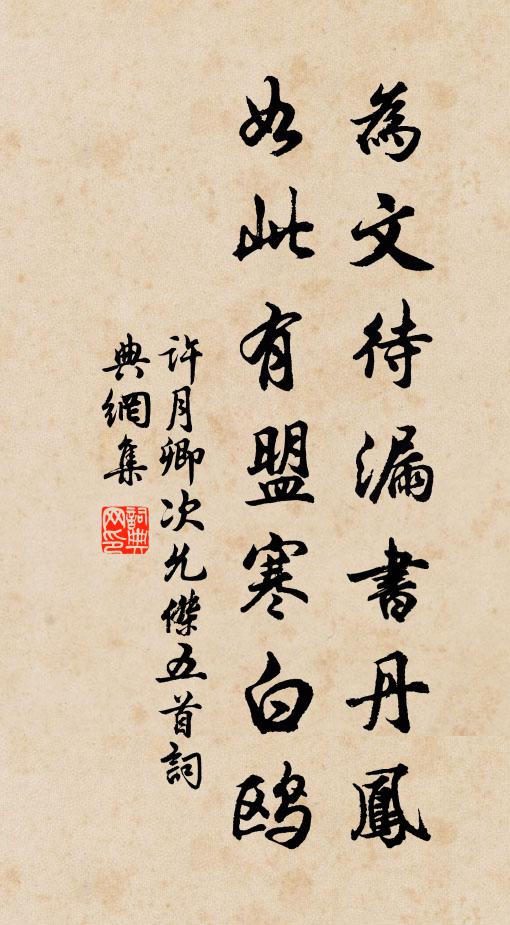 為文待漏書丹鳳
如此有盟寒白鸥
許月卿次允傑五首詞
典網集
詞典網印